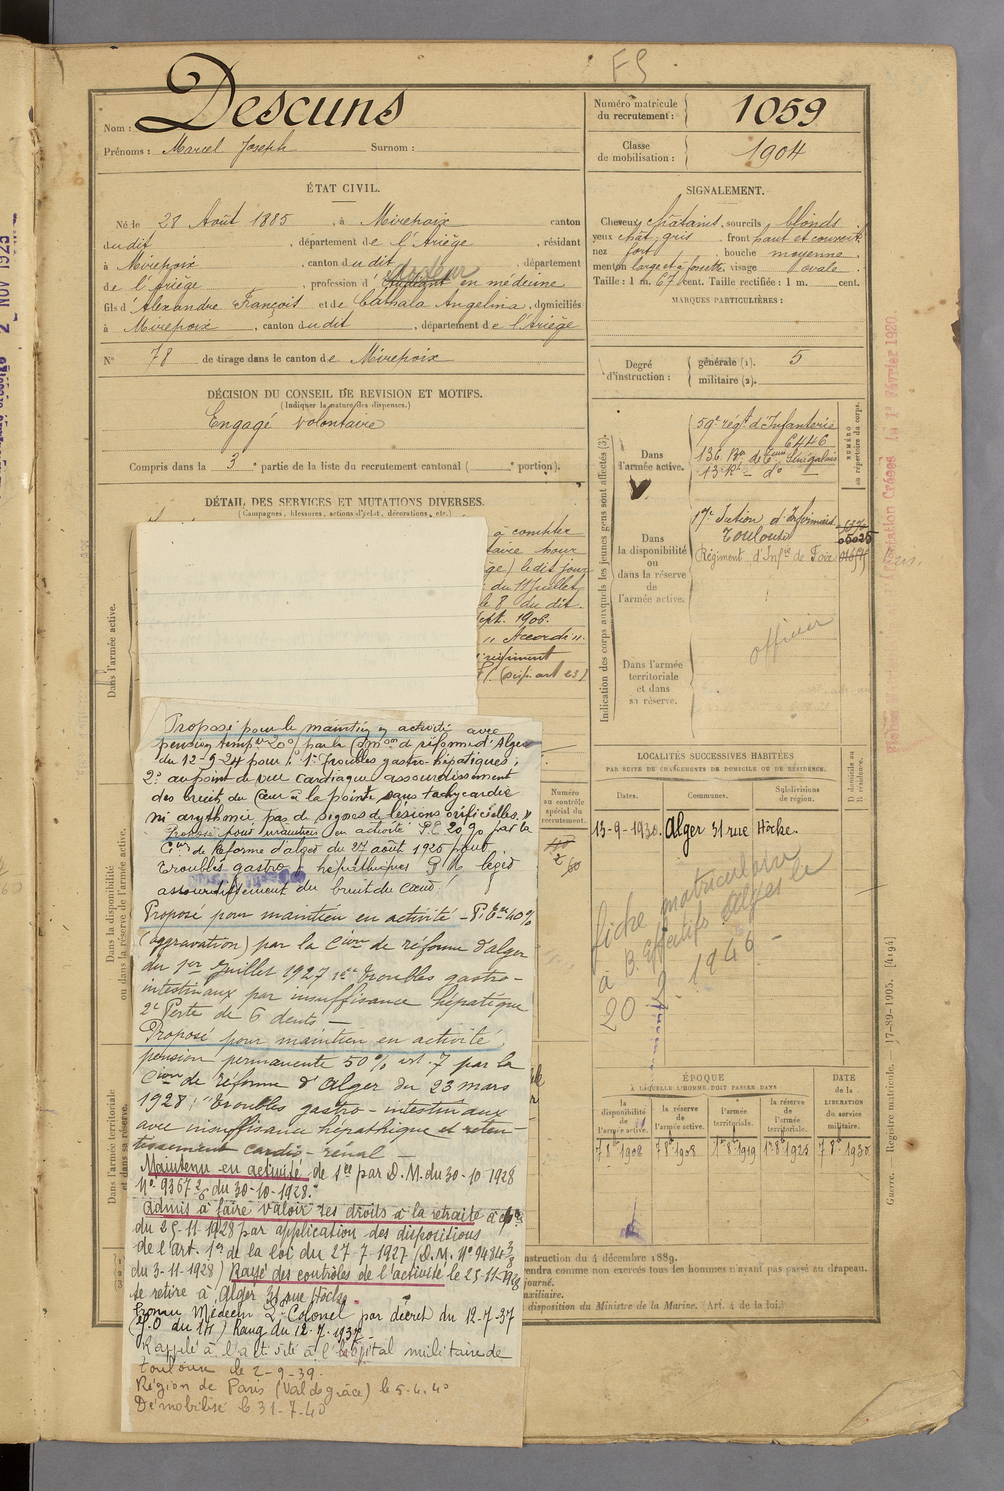 FS
Nom : Descuns
Prénoms : Marcel Joseph Surnom :
Numéro matricule du recrutement : 1059
Classe de mobilisation : 1904
ÉTAT CIVIL.
Né le 28 Août 1885, à Mirepoix canton
du dit, département de l'Ariège, résidant
à Mirepoix, canton du dit, département
de l'Ariège, profession d'Etudiant en médecine
docteur
fils d'Alexandre François et de Cathala Angelina, domiciliés
à Mirepoix, canton du dit, département de l'Ariège
N° 78 de tirage dans le canton de Mirepoix
DÉCISION DU CONSEIL DE REVISION ET MOTIFS.
(Indiquer la nature des dispenses.)
Engagé volontaire
Compris dans la 3e partie de la liste du recrutement cantonal ( e portion).
DÉTAIL DES SERVICES ET MUTATIONS DIVERSES.
(Campagnes, blessures, actions d'éclat, décorations, etc.)
à compter
taire pour
ge) le dit jour
du 11 Juillet
le 8 du dit.
Sept. 1906.
" Accordé ".
régiment
Dans l'armée active.
Dans la disponibilité ou dans la réserve de l'armée active.
Dans l'armée territoriale et dans sa réserve.
Proposé pour le maintien en activité avec
pension temp re 20% par la Comon de réforme d'Alger
du 12-9-24 pour : 1° Troubles gastro-hépatiques ;
2° au point de vue cardiaque assourdissement
des bruits du Cœur à la pointe, sans tachycardie
ni arythmie pas de signes de lésions orificielles.
Proposé pour maintien en activité P.E 20% par la
Con de Réforme d'Alger du 27 août 1925 pour
troubles gastro hépathiques léger
assourdissement du bruit du cœur
Proposé pour maintien en activité - P. 40%
(aggravation) par la Cion de réforme d'Alger
du 1er Juillet 1927 1° troubles gastro-
intestinaux par insuffisance hépatique
2° Perte de 6 dents -
Proposé pour maintien en activité
pension permanente 50% par la
Cion de réforme d'Alger du 23 mars
1928 : "Troubles gastro-intestinaux
avec insuffisance hépathique et reten-
tissement cardio-rénal -
Maintenu en activité de 1er par D.M. du 30-10-1928
N° 9367 du 30-10-1928.
Admis à faire valoir ses droits à la retraite à
du 25-11-1928 par application des dispositions
de l'art. 1er de la loi du 27-7-1927 (D.M. N° 9484
du 3-11-1928) Rayé des contrôles de l'activité le 25-11-1928
Se retire à Alger 31 rue Höcke.
Promu Médecin Lt-Colonel par décret du 12-7-37
(J.O du 14) Rang du 12-7-1937 -
Rappelé à l'activité à l'hôpital militaire de
Toulouse le 2-9-39.
Région de Paris (Val de grâce) le 5-4-40
Démobilisé le 31-7-40
SIGNALEMENT.
Cheveux chatains, sourcils blonds
yeux chât. gris, front haut et couvert
nez fort, bouche moyenne
menton large et à fossette, visage ovale.
Taille : 1 m. 67 cent. Taille rectifiée : 1 m. cent.
MARQUES PARTICULIÈRES :
Degré d'instruction : générale (1). 5
militaire (2).
Indication des corps auxquels les jeunes gens sont affectés (3).
NUMÉRO au répertoire du corps.
Dans l'armée active.
59e régt d'Infanterie
6446
136 Bon de Tirs Sénégalais
13 Rt do
Dans la disponibilité ou dans la réserve de l'armée active.
17e Section d'Infirmiers
Toulouse
05025
Régiment d'Infie de Foix
Dans l'armée territoriale et dans sa réserve.
officier
LOCALITÉS SUCCESSIVES HABITÉES
PAR SUITE DE CHANGEMENTS DE DOMICILE OU DE RÉSIDENCE.
Dates. Communes. Subdivisions de région. D domicile ou R résidence.
13-9-1930. Alger 31 rue Höcke.
Numéro au contrôle spécial du recrutement.
fiche matriculaire
à B. Effectifs Alger le
20 2 1946 -
ÉPOQUE
À LAQUELLE L'HOMME DOIT PASSER DANS
DATE de la LIBÉRATION du service militaire.
la disponibilité de l'armée active. la réserve de l'armée active. l'armée territoriale. la réserve de l'armée territoriale.
7 8bre 1908 7 8bre 1908 1er 8bre 1919 1er 8bre 1925 7 8bre 1930
nstruction du 4 décembre 1889.
endra comme non exercés tous les hommes n'ayant pas passé au drapeau.
journé.
uxiliaire.
disposition du Ministre de la Marine. (Art. 4 de la loi.)
Guerre. Registre matricule. — 17-89-1905. [4194]
2 NOV 1925